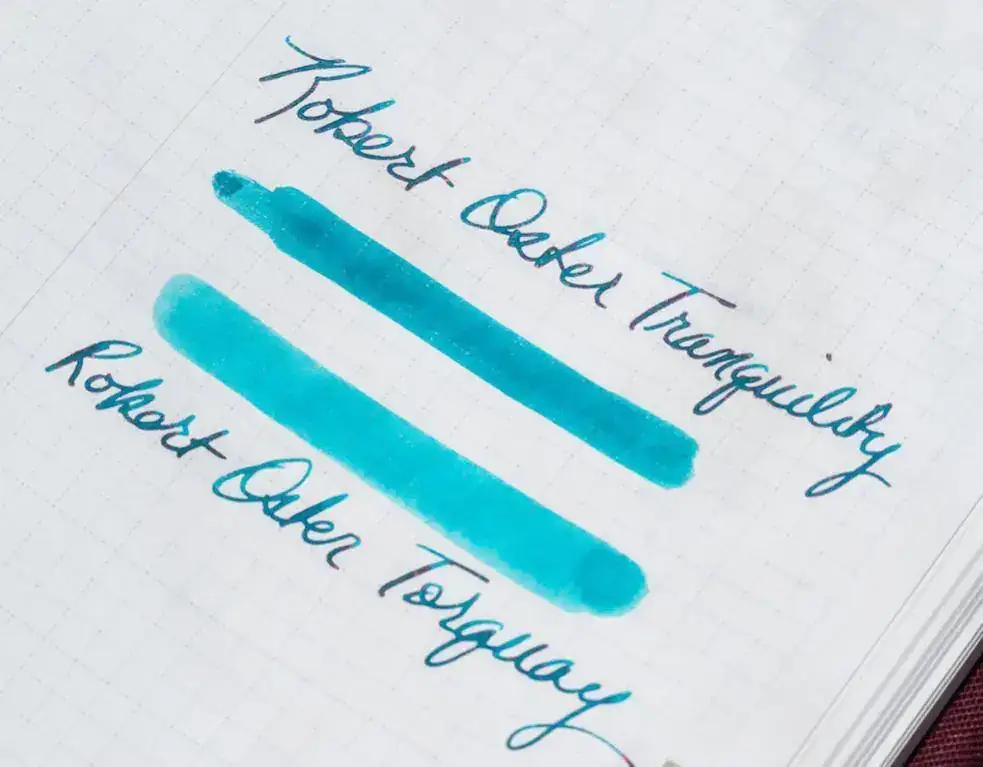 Robert Oster Tranquility
Robert Oster Torquay